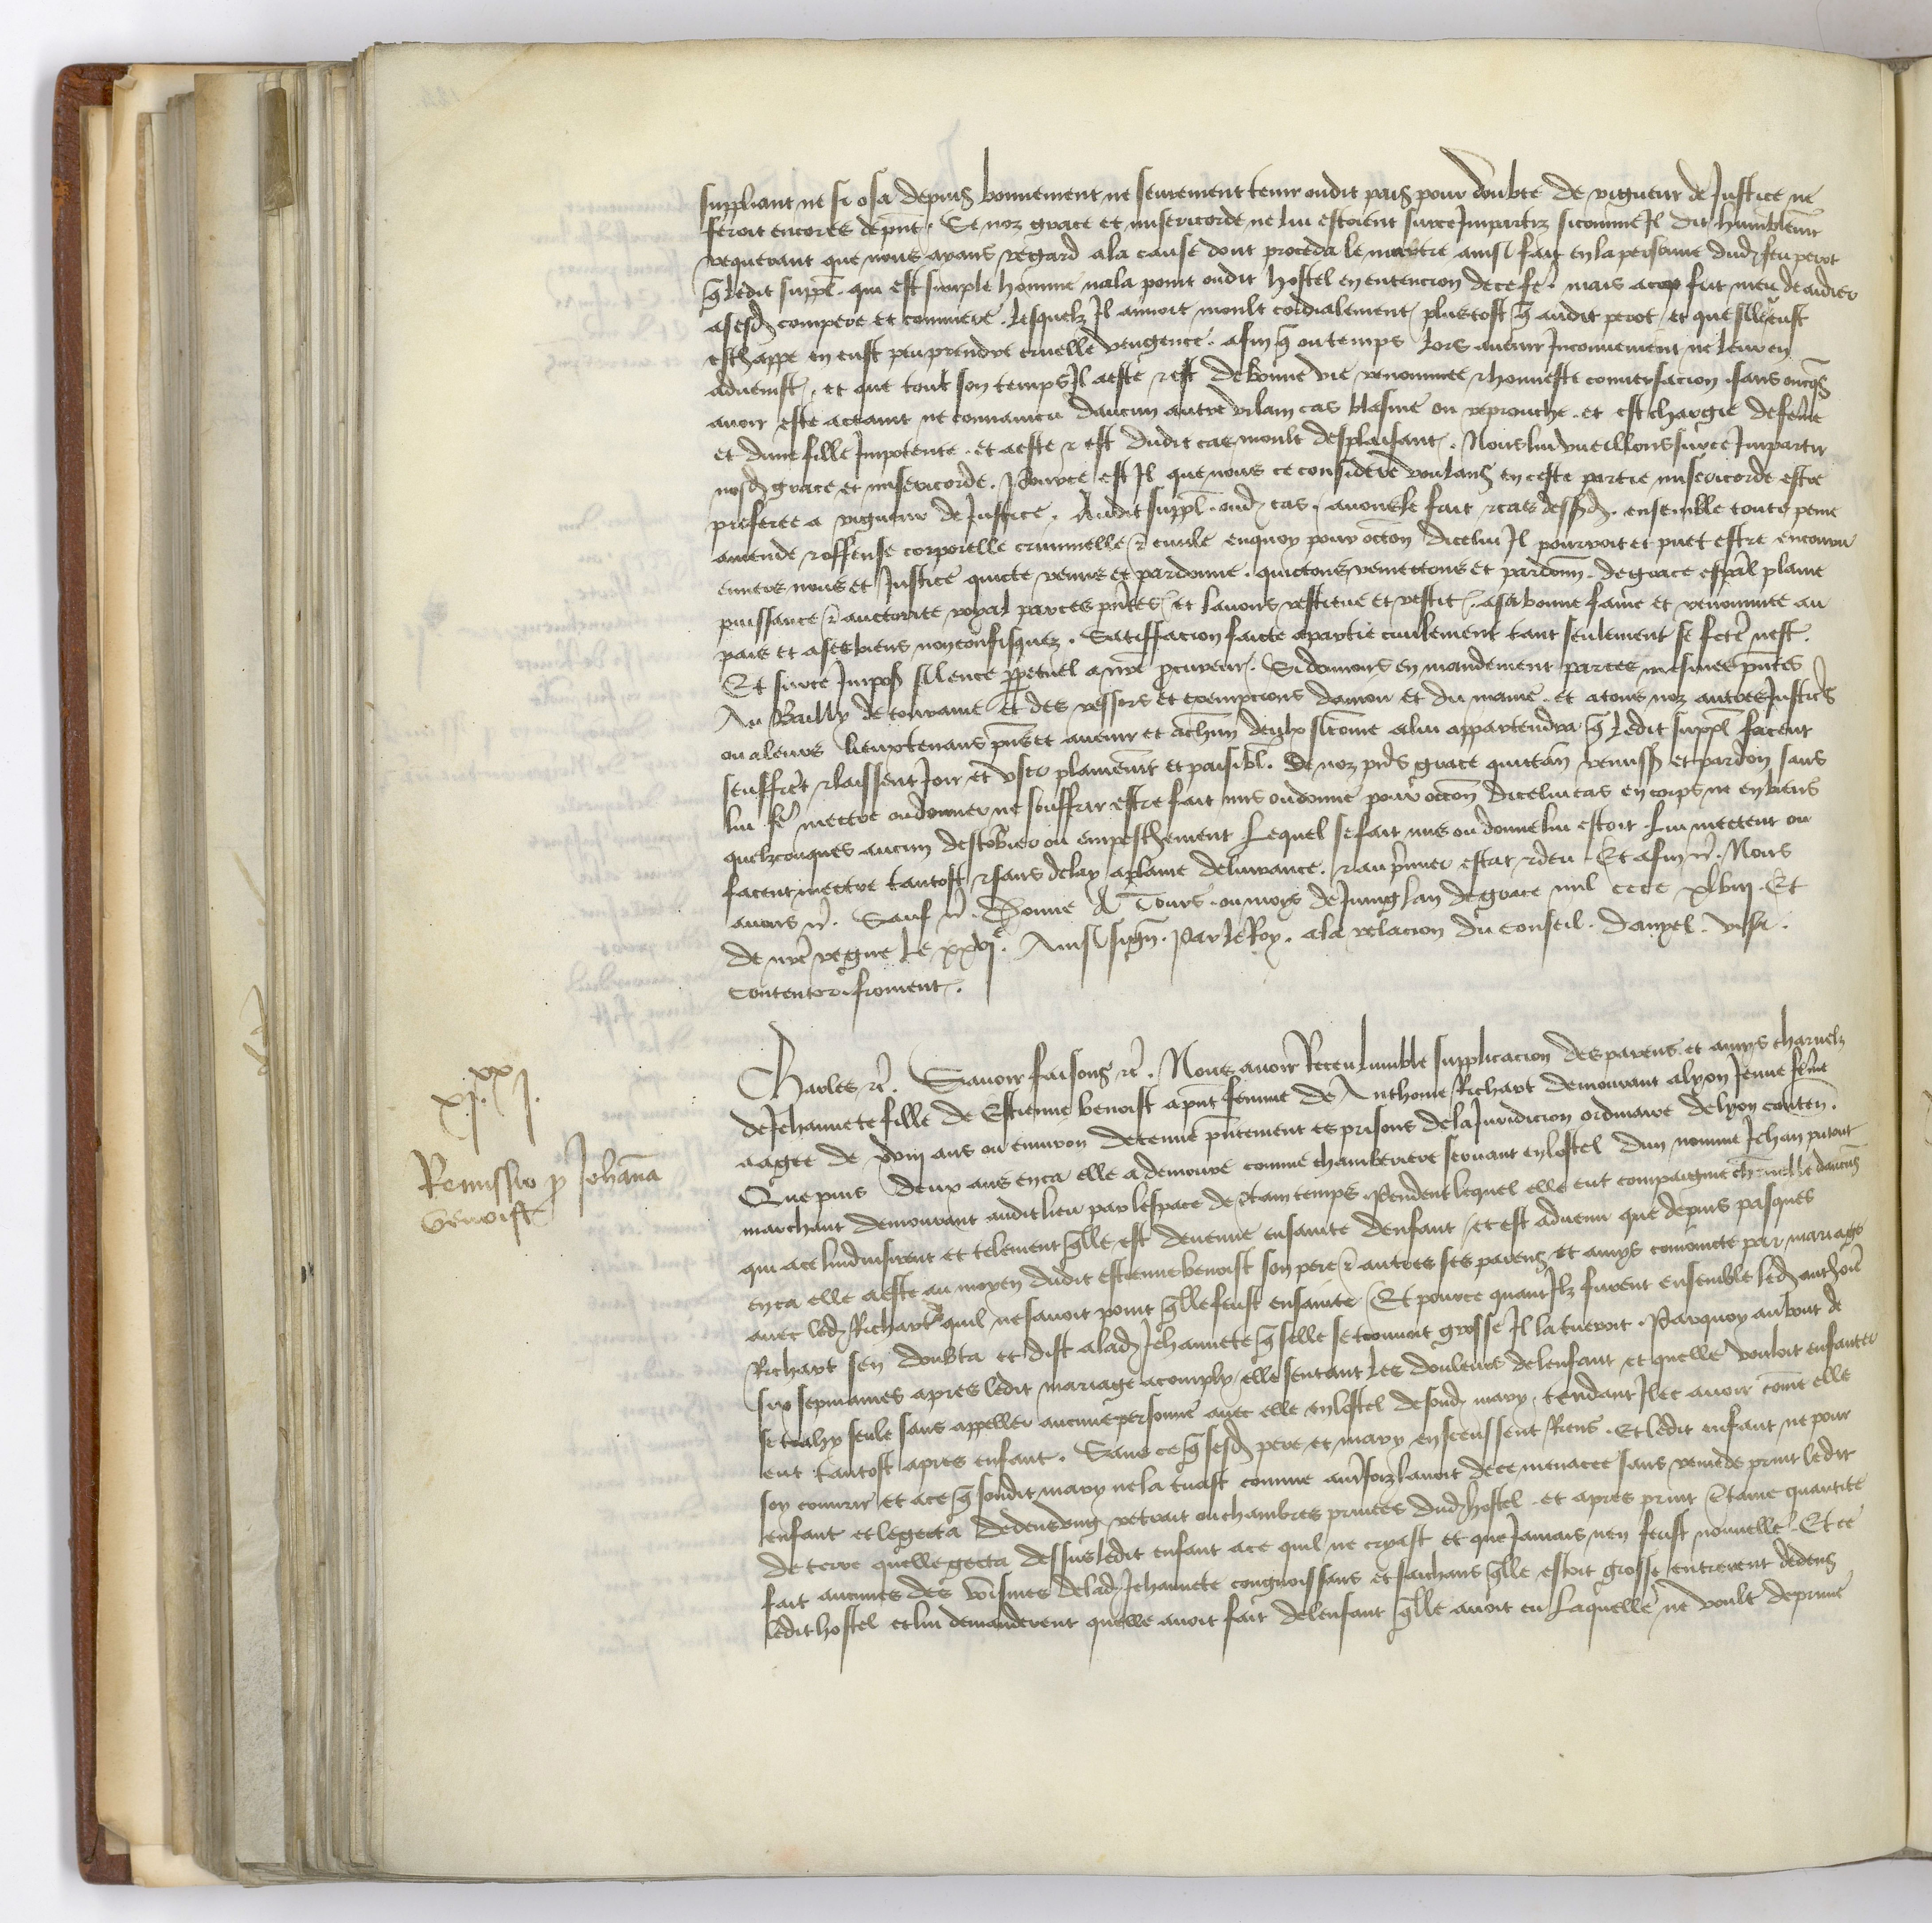 suppliant ne si osa depuis bonnement ne seurement tenir oudit pais pour doubte de vigueur de Justice ne
feroit encores depnt. Se noz grace et misericorde ne lui estoient surce Impartiz sicomme Il dit humblemt
requerant que nous ayans regard ala cause dont proceda le murtre ainsi fait en la personne dud feu perot
q ledit suppl. qui est simple homme nala point oudit hostel en entencion dece fe. mais acop fut meu de aidier
asesd compere et commere. lesquelz Il amoit moult cordialement plustost q audit perot et que sil leust
eschappe en eust peu prendre cruelle vengence. afin q ou temps lors auenir Inconuenient ne leur en
aduenist. et que tout son temps Il aeste & est de bonne vie renommee & honneste conuersacion. sans oncqs
auoir este actaint ne conuaincu daucun autre vilain cas blasme ou reprouche. et est chargie de feme
et dune fille Impotente. et aeste & est dudit cas moult desplaisant. Nous lui vueillons surce Impartir
nosd grace et misericorde. Pource est Il que nous ce considere voulans en ceste partie misericorde estre
preferee a vigueur de Justice. Audit suppl. oud cas. auons le fait & cas dessusd. ensemble toute peine
amende & offense corporelle criminelle & ciuile enquoy pour occon dicelui Il pourroit et puet estre encouru
enuers nous et Justice quicte remis et pardonne. quictons remectons et pardonn. de grace espal plaine
puissance & auctorite royal par ces pntes et lauons restitue et restit. asa bonne fame et renommee au
pais et asesbiens nonconfisquez. Satiffacion faicte apartie ciuilement tant seulement se fcte nest.
Et surce Imposs silence ppetuel a nre pcureur. Si donnons en mandement par ces mesmes pntes
Au Bailly de touraine et des ressors et exempcions daniou et du maine. et atous noz autres Justices
ou aleurs lieuxtenans pns et auenir et achun deulx sicome alui appartendra q ledit suppl facent
seuffret & laissent Joir et vser plainemt et paisibl. De noz pns grace quictan remiss et pardon sans
lui fe mectre oudonner ne souffrir estre fait mis oudonne pour occon dicelui cas en corps ne en biens
quelzconques aucun destobier ou empeschement Lequel sefait mis ou donne lui estoit. lui mectent ou
facent mectre tantost & sans delay aplaine deliurance. & au pmier estat & deu. Et afin &c. Nous
auons &c. Sauf &c. Donne A Tours. ou moys de Juing lan de grace mil cccc xlviii. Et
de nre regne le xxvi e. Ainsi sign. Par le Roy. ala relacion du conseil. Danyel. visa.
Contentor. froment.
xx
xi. i.
Remissio p Johana
Benoist
Charles &c. Sauoir faisons &c. Nous auoir Receu lumble supplicacion des parens et amys charnelz
de Jehannete fille de Estienne benoist apnt femme de Anthoine Richart demourant alyon Jeune feme
aagee de xviii ans ou enuiron detenue pntement es prisons dela Juridicion ordinaire de lyon conten.
Que puis deux ans enca elle a demoure comme chamberiere seruant en lostel dun nomme Jehan
marchant demourant audit lieu par lespace de ctain temps. Pendent lequel elle eut compaignie charnelle daucuns
qui ace linduisirent et telement qlle est deuenue ensainte denfant. et est aduenu que depuis pasques
enca elle aeste au moyen dudit estienne benoist son pere & autres ses parens et amys conioincte par mariage
auec led Richart quil ne sauoit point qlle feust ensainte. Et pource quant Ilz furent ensemble led anthoie
Richart sen doubta et dist alad Jehannete q selle se trouuoit grosse Il la tueroit. Parquoy au bout de
six sepmaines apres ledit mariage acomply. elle sentant les douleurs delenfant et quelle vouloit enfanter
se trahy seule sans appeller aucune personne auec elle en lostel de sond mary. tendant Ilec auoir come elle
eut tantost apres enfant. Sans ce q sesd pere et mary en sceussent Riens. Et ledit enfant ne pour
soy couurir et ace q sondit mary ne la tuast comme autresfoiz lauoit dece menacee sans remede print ledit
enfant et legecta dedens ung retrait ou chambres priuees dud hostel. et apres print ctaine quantite
de terre quelle gecta dessus ledit enfant ace quil ne cryast et que Jamais nen feust nouuelle. Et ce
fait aucunes des voisines delad Jehannete congnoissans et saichans qlle estoit grosse entrerent dedens
ledit hostel et lui demanderent quelle auoit fait delenfant qlle auoit eu Laquelle ne voult deprime